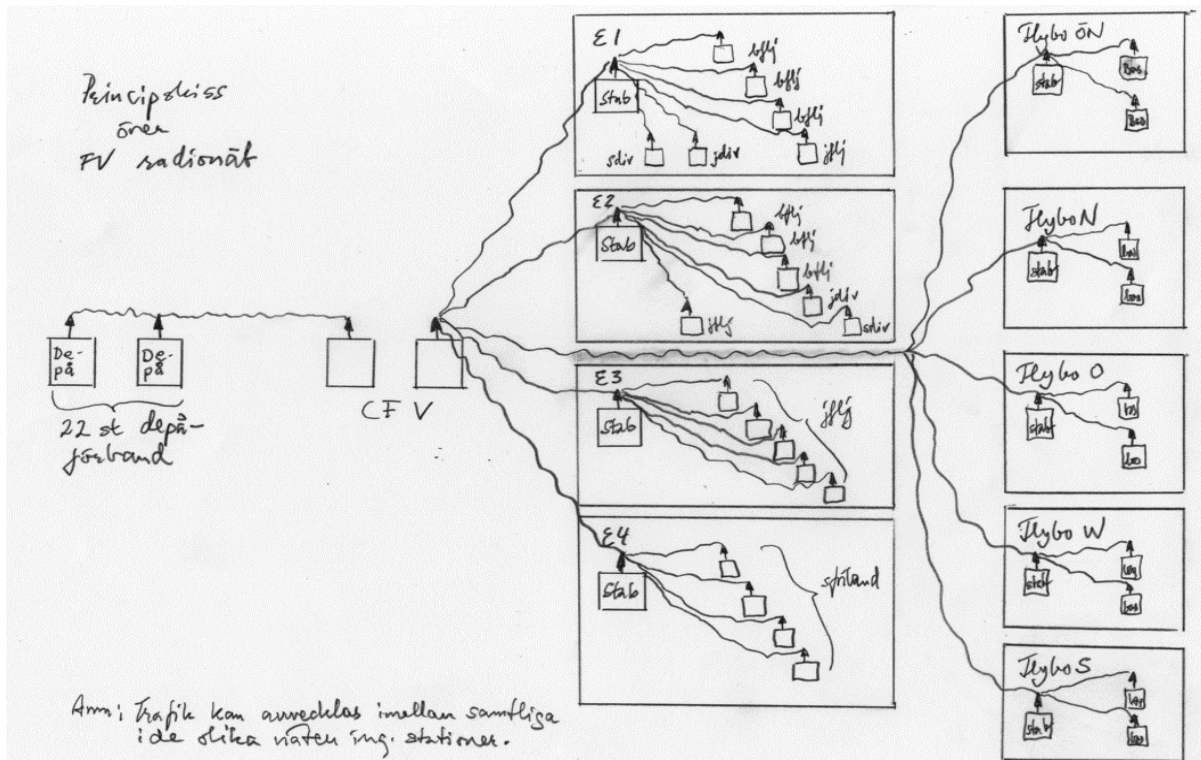 Principskiss
över
FV radionät
De-
på
De-
på
22 st depå-
förband
CFV
E1
Stab
bflj
bflj
bflj
jflj
sdiv
jdiv
E2
Stab
bflj
bflj
bflj
jdiv
sdiv
jflj
E3
Stab
jflj
E4
Stab
Flybo ÖN
stab
Bas
Bas
Flybo N
stab
bas
bas
Flybo O
stab
bas
bas
Flybo W
stab
bas
bas
Flybo S
stab
bas
bas
Anm: Trafik kan avvecklas imellan samtliga
i de olika näten ing. stationer.